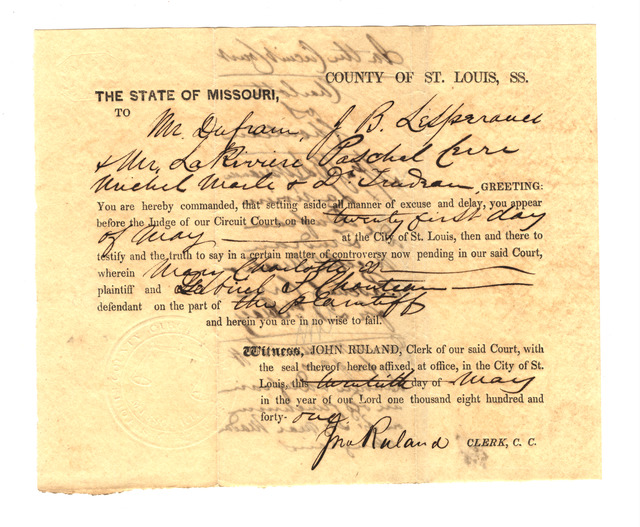 COUNTY OF ST. LOUIS, SS.
THE STATE OF MISSOURI,
TO
Mr. Dufram, J B. L'Esperance
& Mr. LaRiviere Paschal Cerre
Michel Marli & Dr. Trudeau, GREETING:
You are hereby commanded, that setting aside all manner of excuse and delay, you appear
before the Judge of our Circuit Court, on the twenty first day
of May at the City of St. Louis, then and there to
testify and the truth to say in a certain matter of controversy now pending in our said Court,
wherein Mary Charlotte is
plaintiff and Gabriel S. Chouteau
defendant on the part of the plaintiff
and herein you are in no wise to fail.
Witness, JOHN RULAND, Clerk of our said Court, with
the seal thereof hereto affixed, at office, in the City of St.
Louis, this twentieth day of May
in the year of our Lord one thousand eight hundred and
forty- one
Jno Ruland CLERK, C. C.